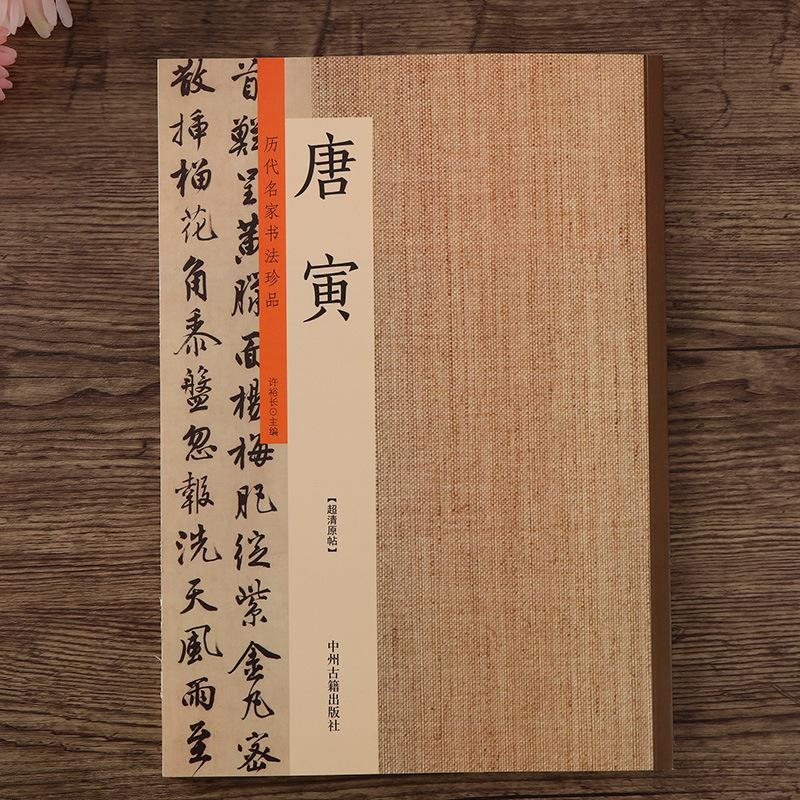 唐寅
历代名家书法珍品
许裕长⊙主编
【超清原帖】
中州古籍出版社
首難呈黄臑面楊梅肥綻紫金丸密
散插榴花角黍盤忽報洗天風雨至